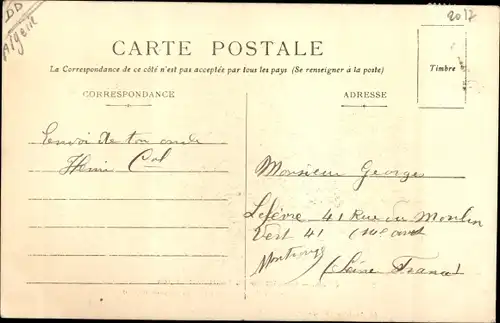 DD
Algerie
2017
CARTE POSTALE
La Correspondance de ce côté n'est pas acceptée par tous les pays (Se renseigner à la poste)
Timbre
CORRESPONDANCE
ADRESSE
Envoi de ton oncle
Henri Col
Monsieur Georges
Lefèvre 41 Rue du Moulin
Vert 41 (14e arrt
Montrouge
(Seine France)